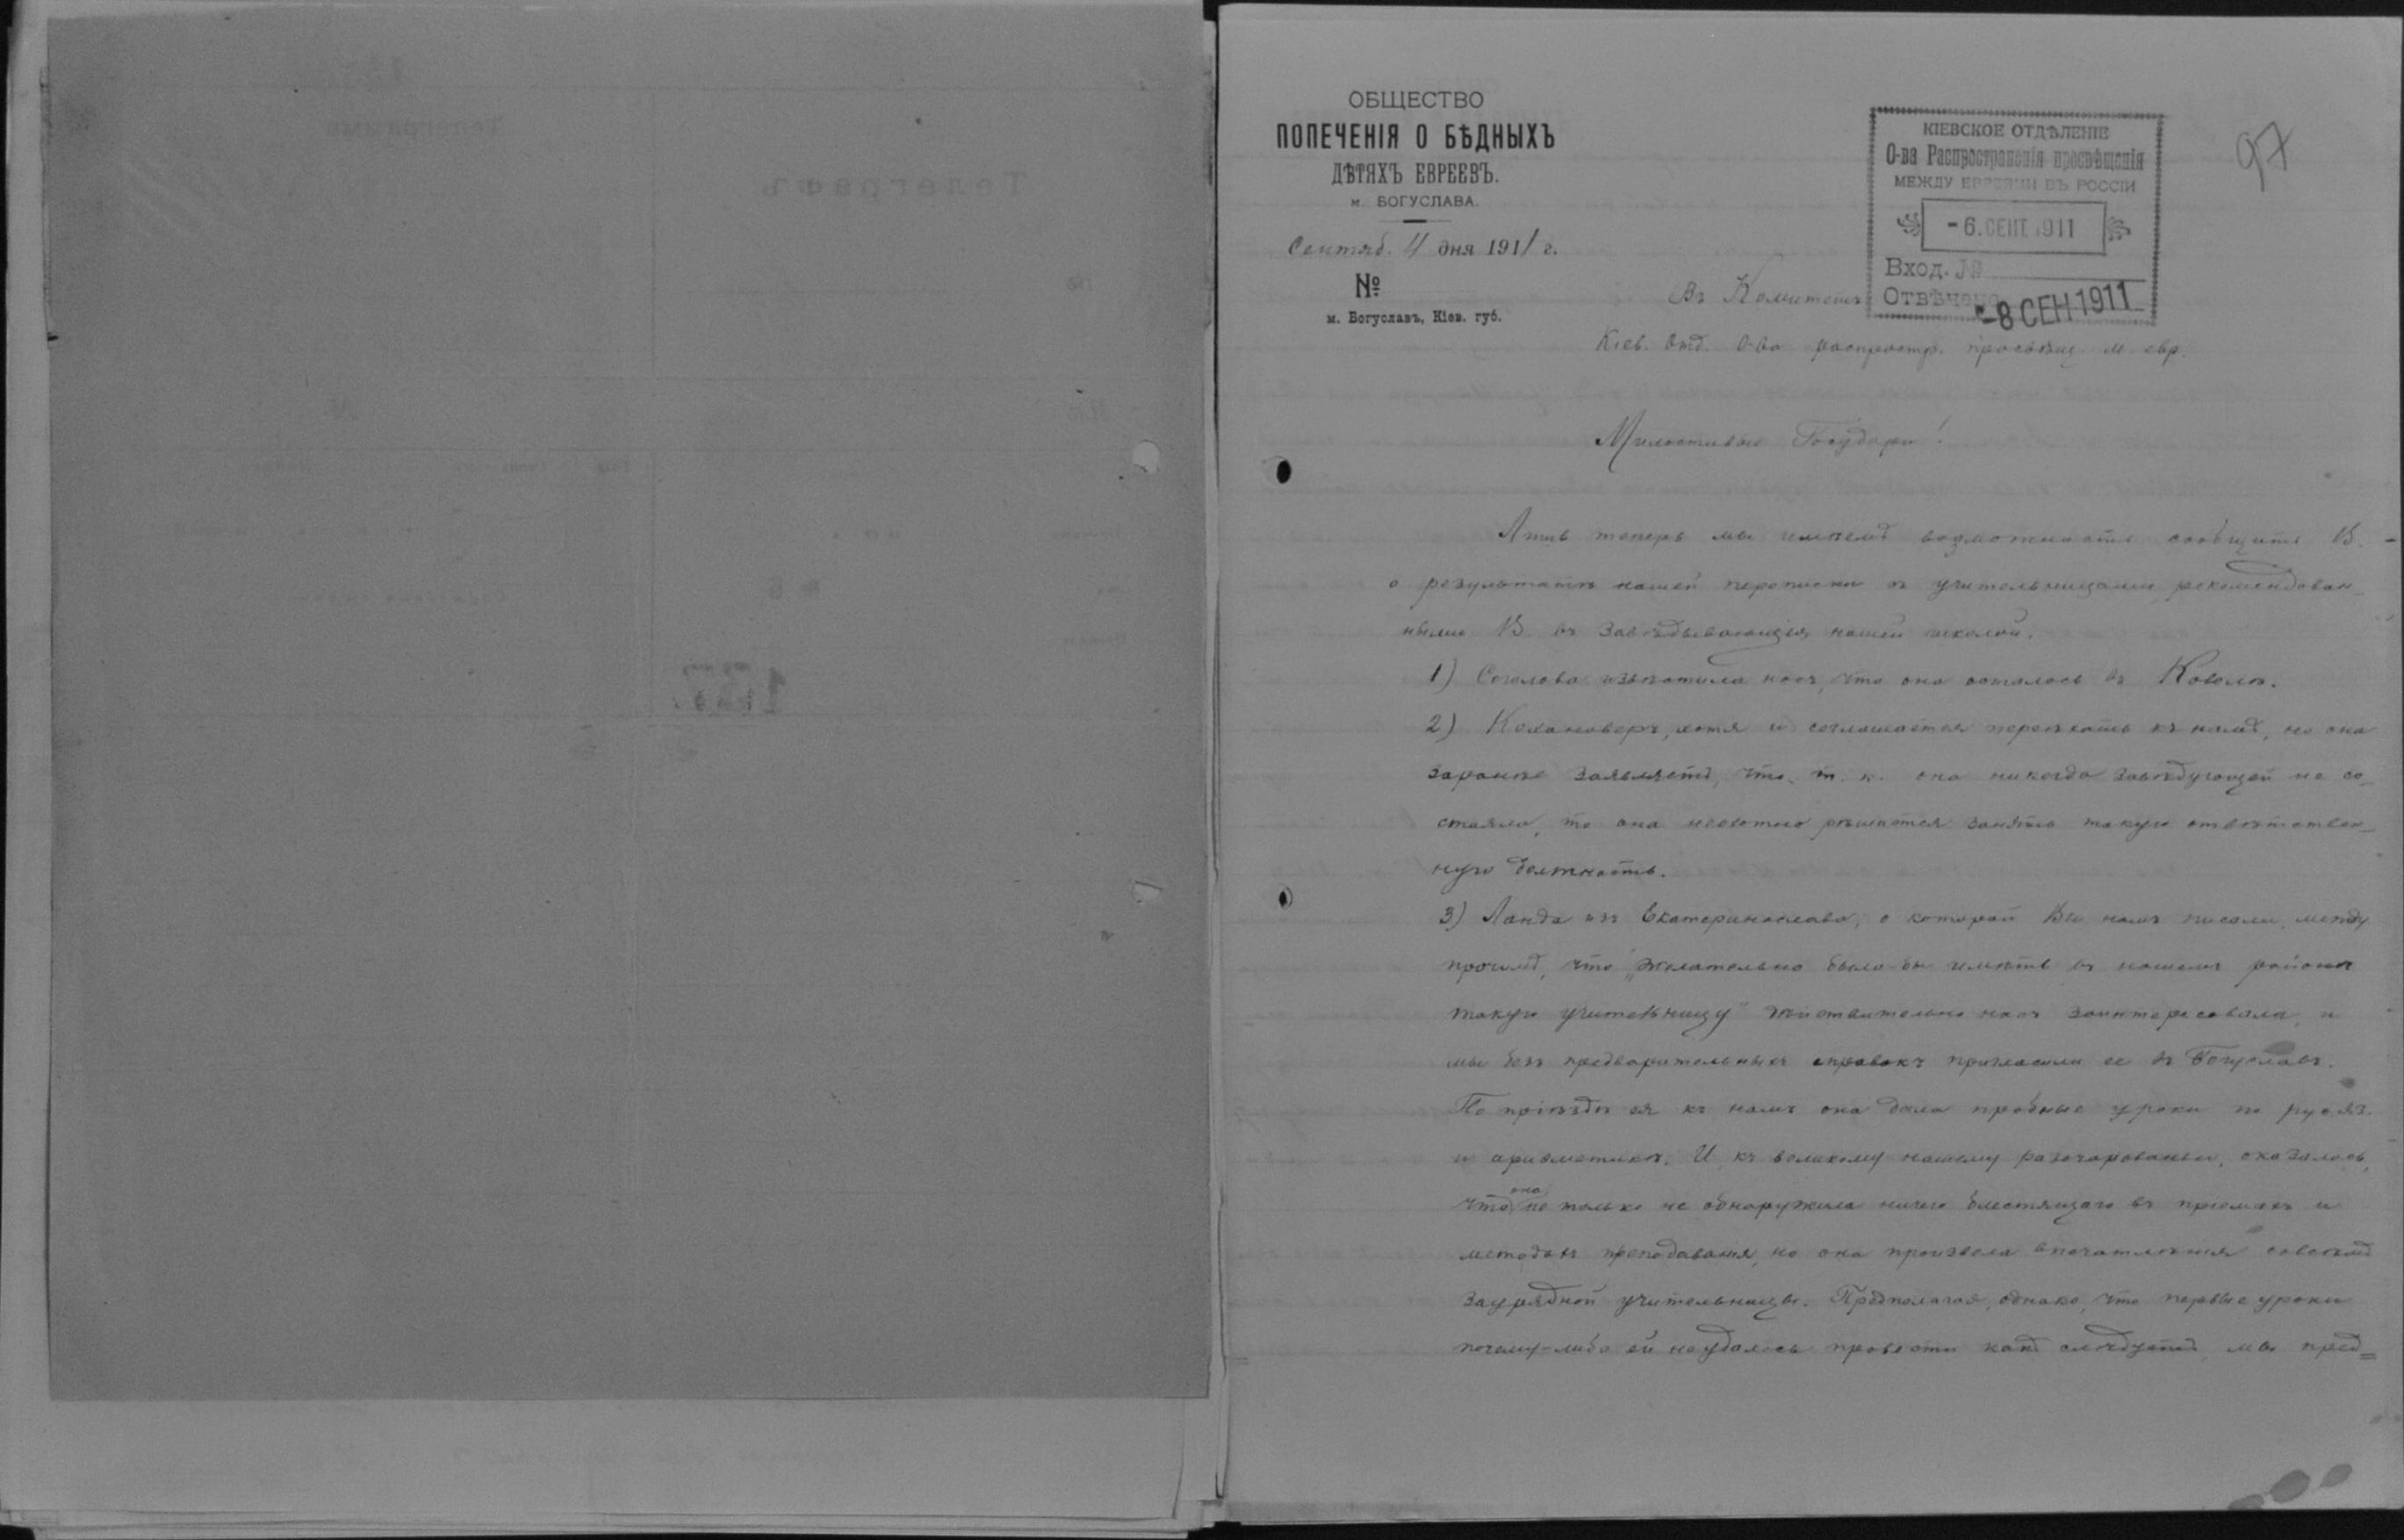 ОБЩЕСТВО
ПОПЕЧЕНІЯ О БѢДНЫХЪ
ДѢТЯХЪ ЕВРЕЕВЪ.
м. БОГУСЛАВА.
Сентяб. 4 дня 1911 г.
№
м. Богуславъ, Кіев. губ.
КІЕВСКОЕ ОТДѢЛЕНІЕ
О-ва Распространенія просвѣщенія
МЕЖДУ ЕВРЕЯМИ ВЪ РОССІИ
-6. СЕНТ. 1911
Вход. №
Отвѣчено
-8 СЕН 1911
97
Въ Комитетъ
Кіев. Отд. О-ва распростр. просвѣщ. м. евр.
Милостивые Государи!
Лишь теперь мы имѣемъ возможность сообщить В.
о результатѣ нашей переписки съ учительницами, рекомендован-
ными В. въ завѣдывающія нашей школой.
1) Соголова извѣстила насъ, что она осталась въ Ковелѣ.
2) Кохановеръ, хотя и соглашается переѣхать къ намъ, но она
заранѣе заявляетъ, что, т. к. она никогда завѣдующей не со-
стояла, то она неохотно рѣшается занять такую отвѣтствен-
ную должность.
3) Ланда изъ Екатеринослава, о которой Вы намъ писали, между
прочимъ, что "желательно было-бы имѣть въ нашемъ районѣ
такую учительницу" дѣйствительно насъ заинтересовала, и
мы безъ предварительныхъ справокъ пригласили ее въ Богуславъ.
По пріѣздѣ ея къ намъ она дала пробные уроки по рус. яз.
и арифметикѣ. И, къ великому нашему разочарованью, оказалось,
что она не только не обнаружила ничего блестящаго въ пріемахъ и
методахъ преподаванія, но она произвела впечатлѣнія совсѣмъ
заурядной учительницы. Предполагая, однако, что первые уроки
почему-либо ей не удалось провести какъ слѣдуетъ, мы пред=